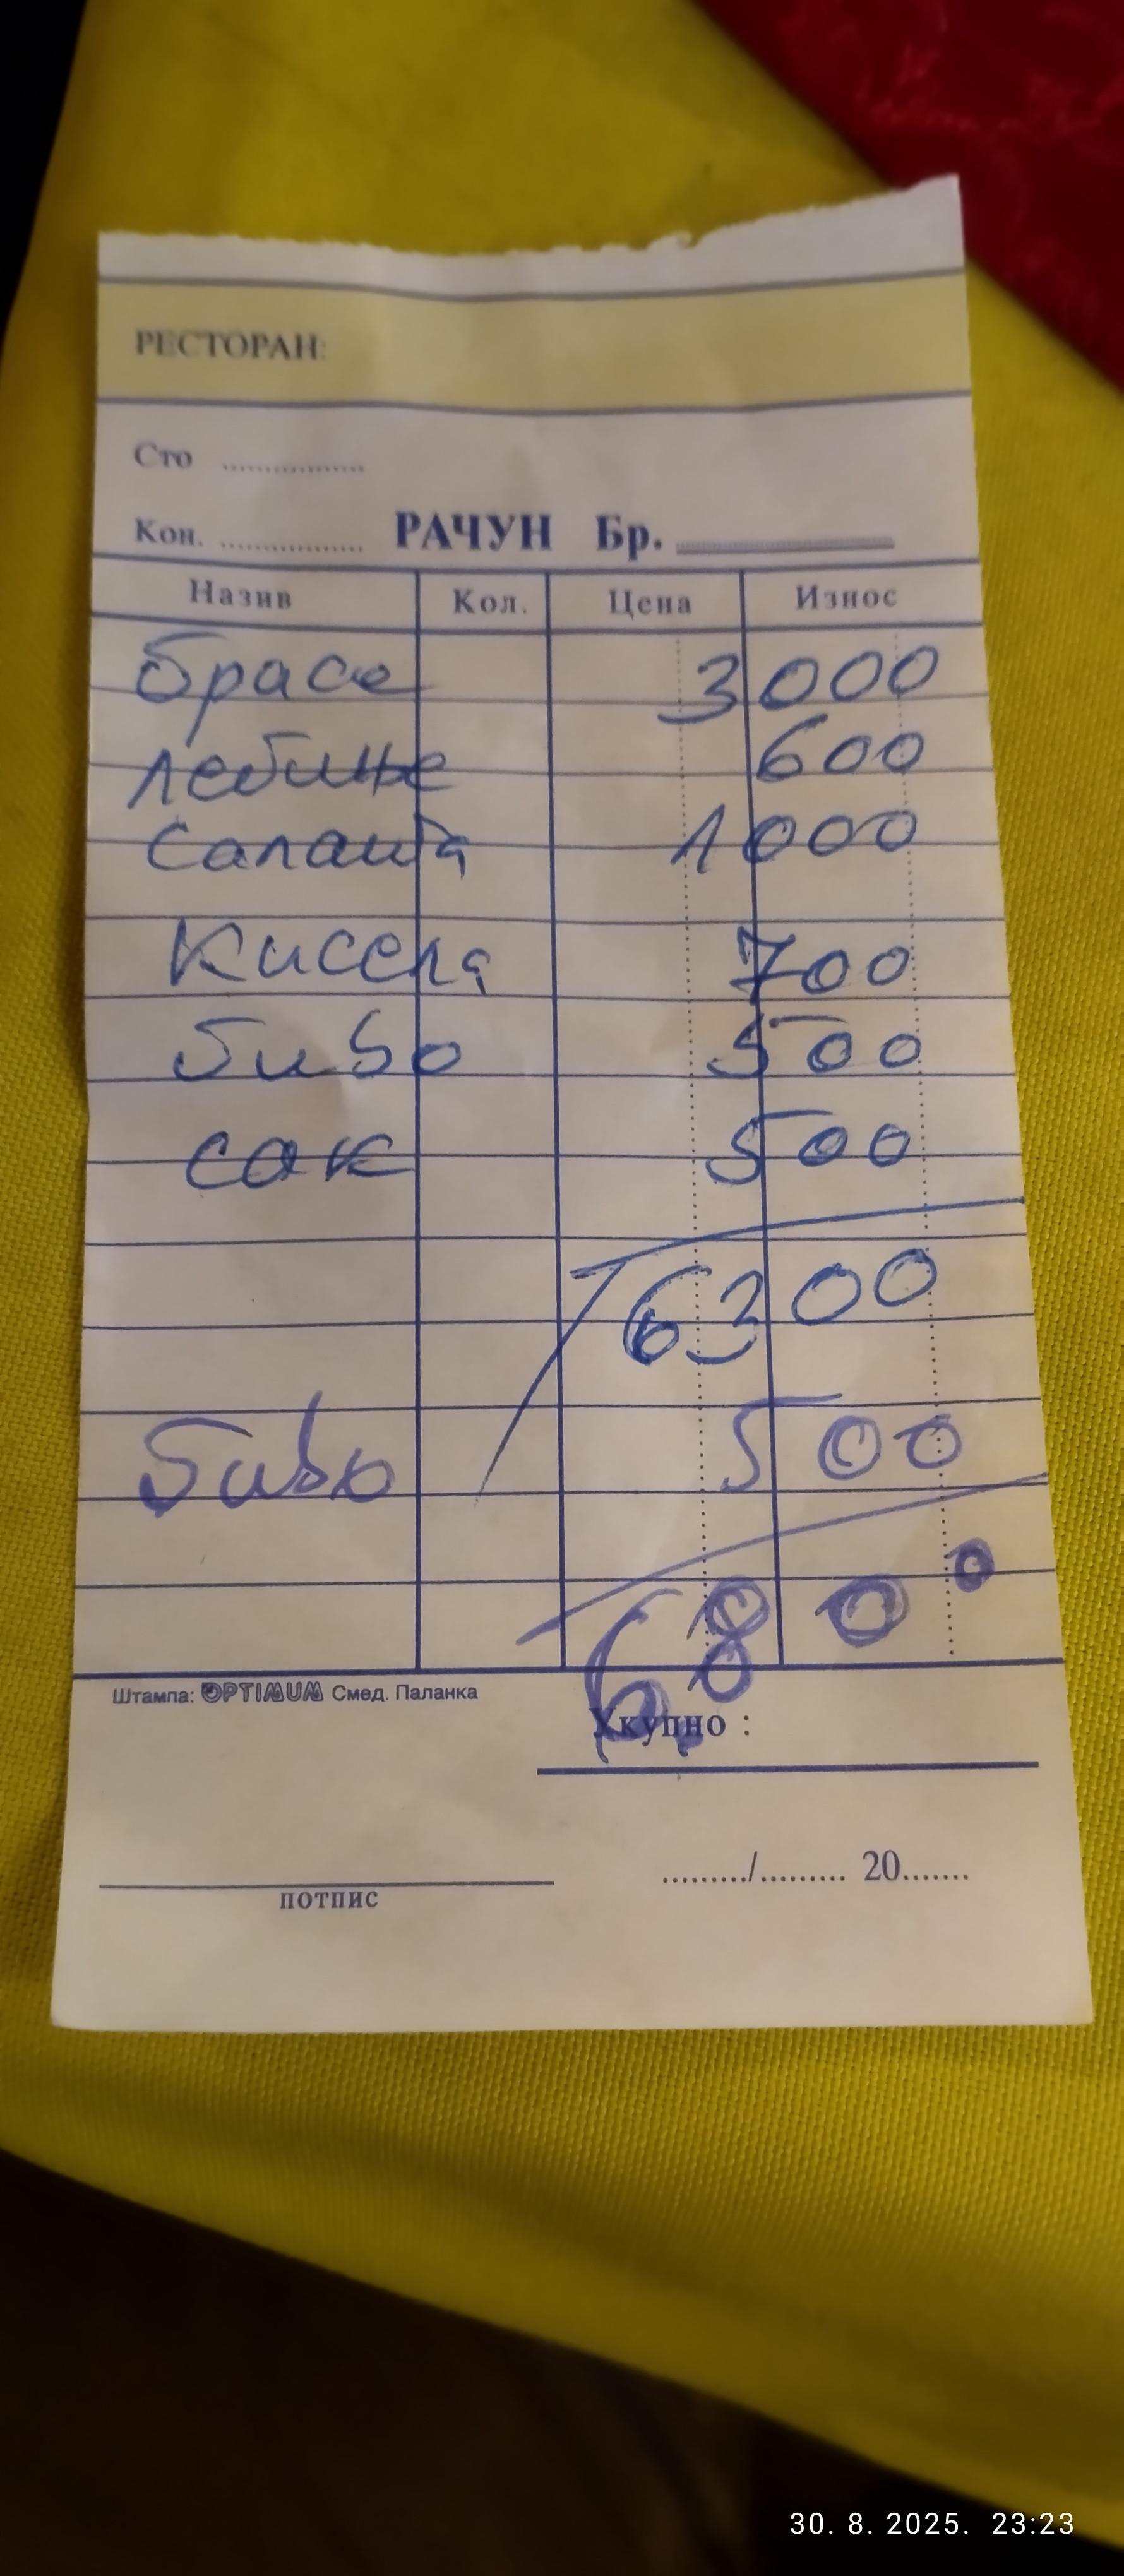 РЕСТОРАН:
Сто ................
Кон. ................ РАЧУН Бр.
Назив Кол. Цена Износ
брасе 3000
лебиње 600
Салата 1000
Кисела 700
Пиво 500
сок 500
6300
Пиво 500
6.800
Штампа: OPTIMUM Смед. Паланка
Укупно :
ПОТПИС
........./......... 20.......
30. 8. 2025. 23:23